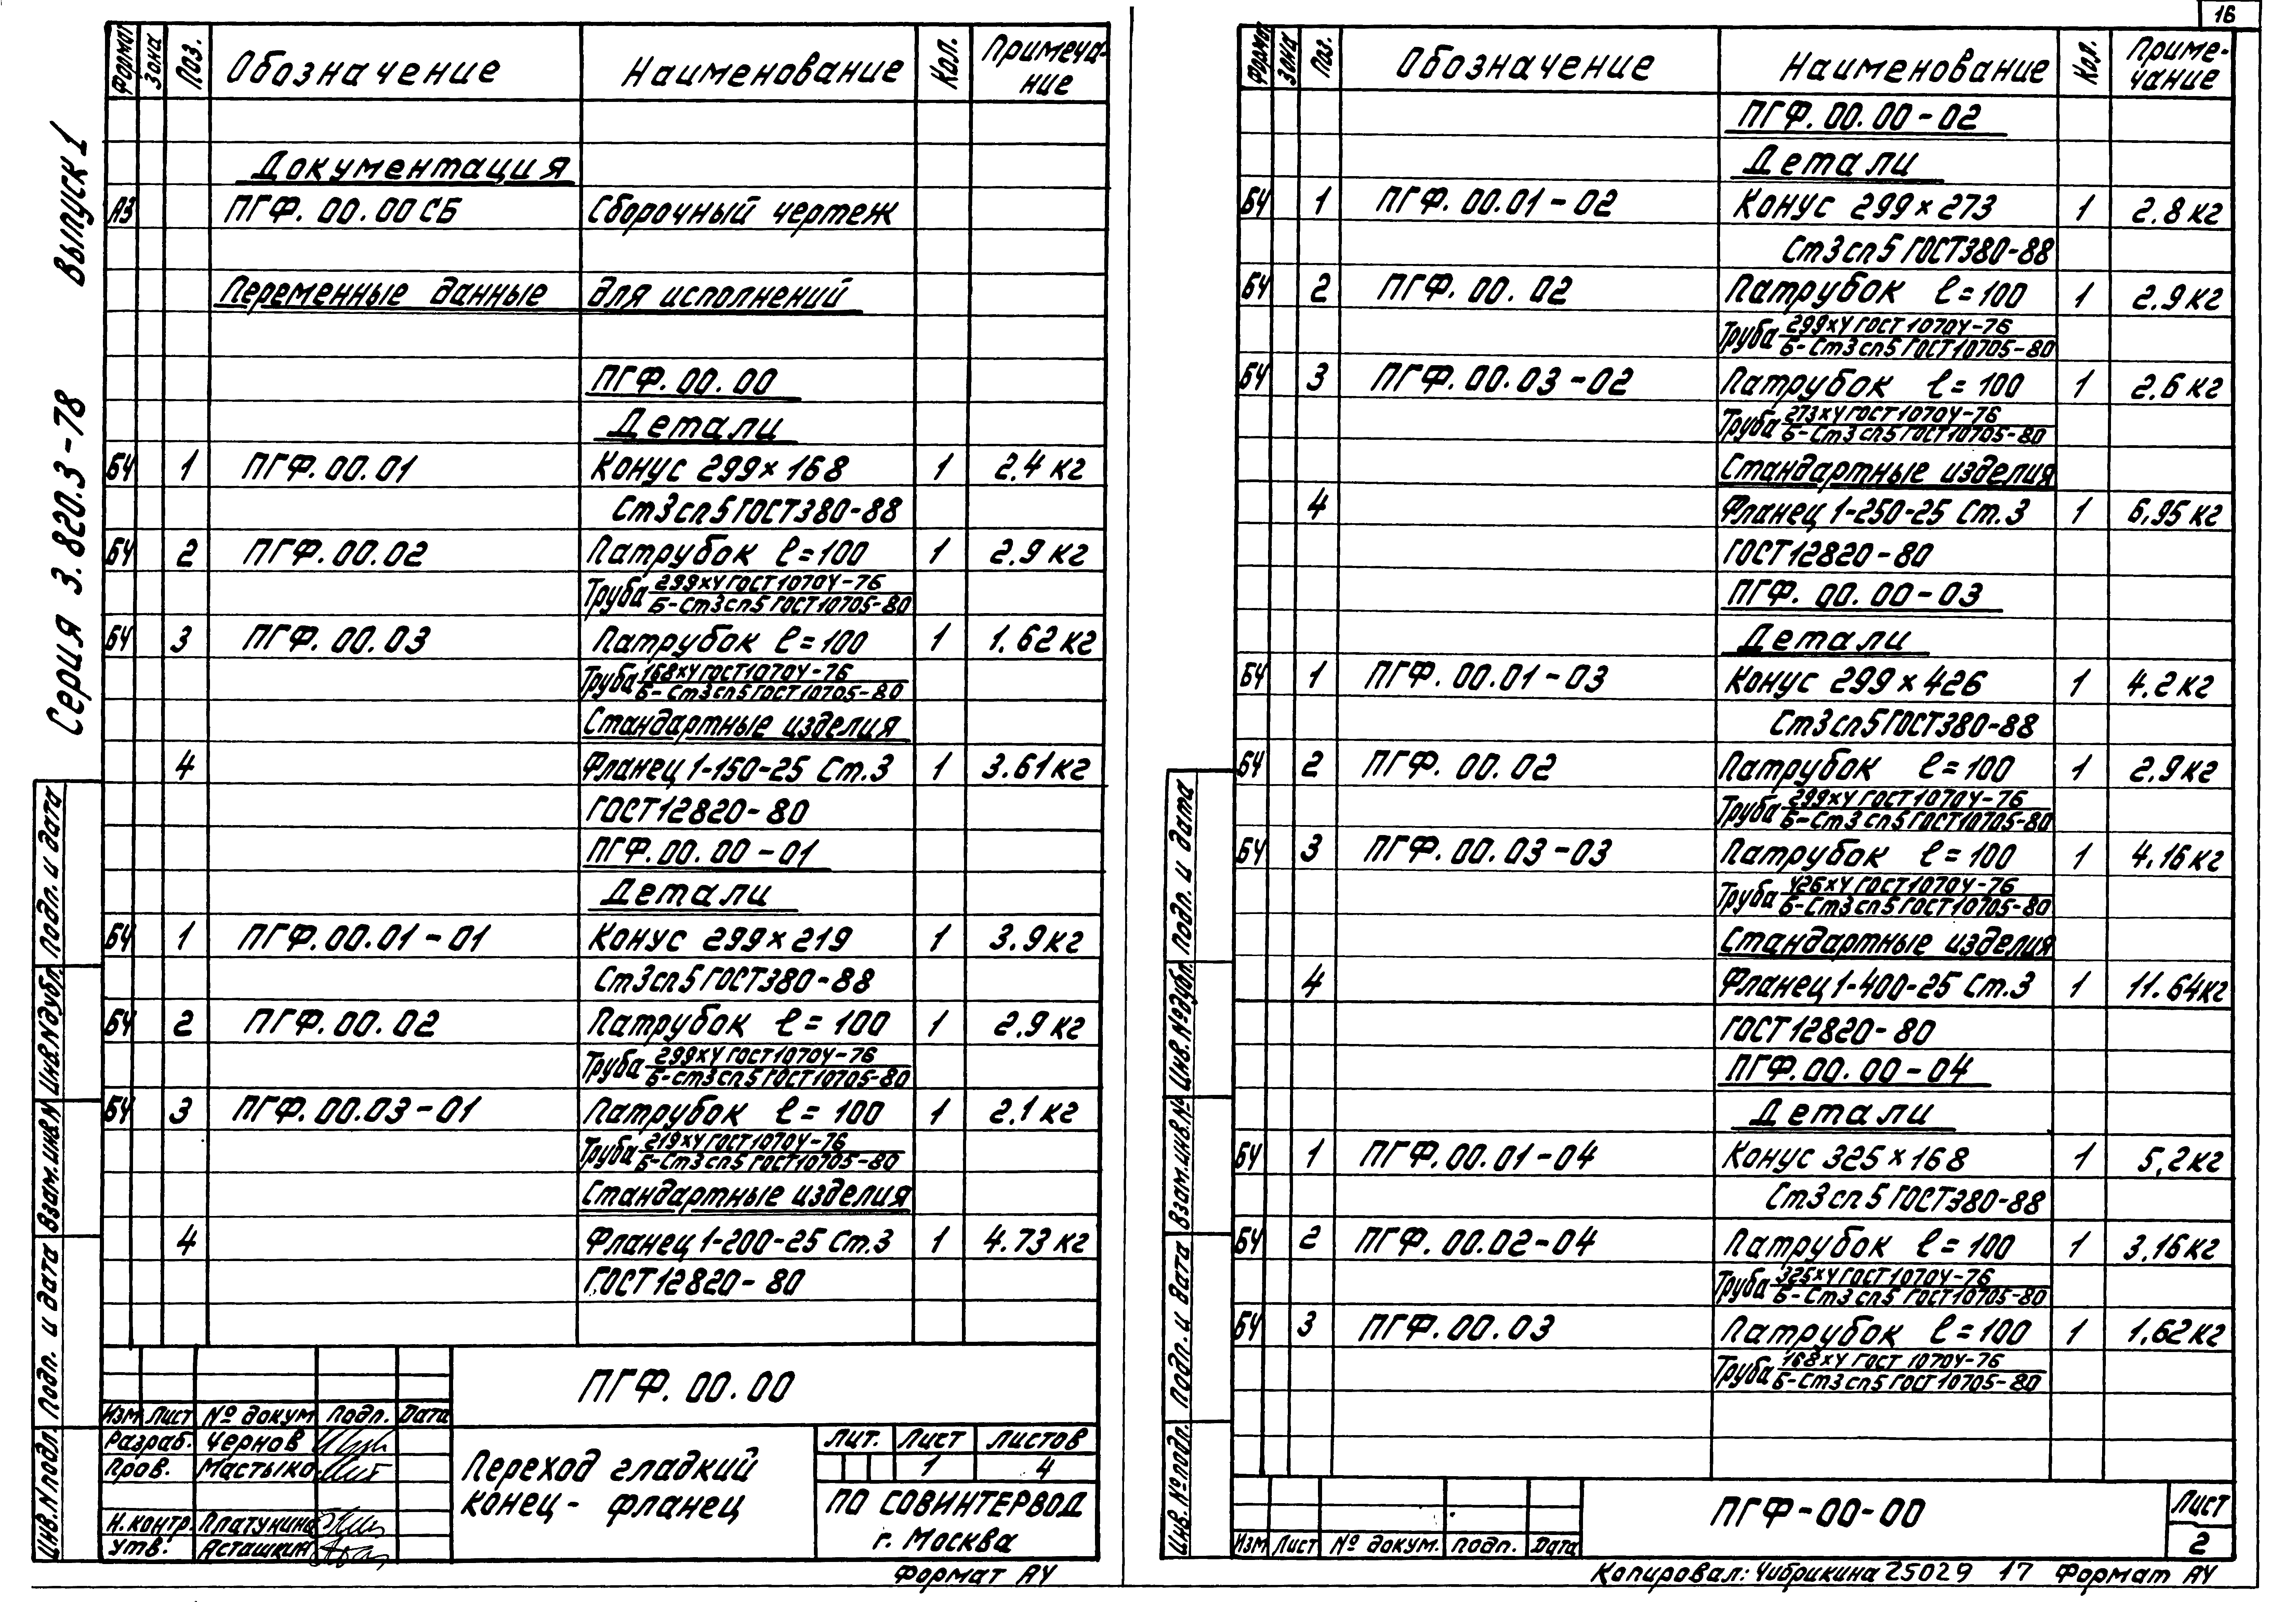 Серия 3.820.3-78 Выпуск 1
Формат Зона Поз. Обозначение Наименование Кол. Примеча-
ние
Документация
А3 ПГФ.00.00СБ Сборочный чертеж
Переменные данные для исполнений
ПГФ.00.00
Детали
БЧ 1 ПГФ.00.01 Конус 299×168 1 2.4 кг
Ст3сп5 ГОСТ380-88
БЧ 2 ПГФ.00.02 Патрубок ℓ=100 1 2.9 кг
Труба 299×4 ГОСТ10704-76
Б-Ст3сп5 ГОСТ10705-80
БЧ 3 ПГФ.00.03 Патрубок ℓ=100 1 1.62 кг
Труба 168×4 ГОСТ10704-76
Б-Ст3сп5 ГОСТ10705-80
Стандартные изделия
4 Фланец 1-150-25 Ст.3 1 3.61 кг
ГОСТ12820-80
ПГФ.00.00-01
Детали
БЧ 1 ПГФ.00.01-01 Конус 299×219 1 3.9 кг
Ст3сп5 ГОСТ380-88
БЧ 2 ПГФ.00.02 Патрубок ℓ=100 1 2.9 кг
Труба 299×4 ГОСТ10704-76
Б-Ст3сп5 ГОСТ10705-80
БЧ 3 ПГФ.00.03-01 Патрубок ℓ=100 1 2.1 кг
Труба 219×4 ГОСТ10704-76
Б-Ст3сп5 ГОСТ10705-80
Стандартные изделия
4 Фланец 1-200-25 Ст.3 1 4.73 кг
ГОСТ12820-80
Инв.N подл. Подп. и дата Взам.инв.N Инв.N дубл. Подп. и дата
ПГФ.00.00
Изм Лист № докум Подп. Дата
Разраб. Чернов
Пров. Мастыко
Н.контр. Платунина
Утв. Асташкин
Переход гладкий
конец - фланец
Лит. Лист Листов
1 4
ПО СОВИНТЕРВОД
г. Москва
Формат А4
16
Формат Зона Поз. Обозначение Наименование Кол. Приме-
чание
ПГФ.00.00-02
Детали
БЧ 1 ПГФ.00.01-02 Конус 299×273 1 2.8 кг
Ст3сп5 ГОСТ380-88
БЧ 2 ПГФ.00.02 Патрубок ℓ=100 1 2.9 кг
Труба 299×4 ГОСТ10704-76
Б-Ст3сп5 ГОСТ10705-80
БЧ 3 ПГФ.00.03-02 Патрубок ℓ=100 1 2.6 кг
Труба 273×4 ГОСТ10704-76
Б-Ст3сп5 ГОСТ10705-80
Стандартные изделия
4 Фланец 1-250-25 Ст.3 1 6,95 кг
ГОСТ12820-80
ПГФ.00.00-03
Детали
БЧ 1 ПГФ.00.01-03 Конус 299×426 1 4.2 кг
Ст3сп5 ГОСТ380-88
БЧ 2 ПГФ.00.02 Патрубок ℓ=100 1 2.9 кг
Труба 299×4 ГОСТ10704-76
Б-Ст3сп5 ГОСТ10705-80
БЧ 3 ПГФ.00.03-03 Патрубок ℓ=100 1 4.16 кг
Труба 426×4 ГОСТ10704-76
Б-Ст3сп5 ГОСТ10705-80
Стандартные изделия
4 Фланец 1-400-25 Ст.3 1 11.64кг
ГОСТ12820-80
ПГФ.00.00-04
Детали
БЧ 1 ПГФ.00.01-04 Конус 325×168 1 5,2кг
Ст3сп5 ГОСТ380-88
БЧ 2 ПГФ.00.02-04 Патрубок ℓ=100 1 3.16кг
Труба 325×4 ГОСТ10704-76
Б-Ст3сп5 ГОСТ10705-80
БЧ 3 ПГФ.00.03 Патрубок ℓ=100 1 1.62 кг
Труба 168×4 ГОСТ 10704-76
Б-Ст3сп5 ГОСТ10705-80
Инв.№ подл. Подп. и дата Взам.инв.№ Инв.№ дубл. Подп. и дата
ПГФ-00-00
Лист
2
Изм Лист № докум. Подп. Дата
Копировал: Чибрикина 25029 17 Формат А4